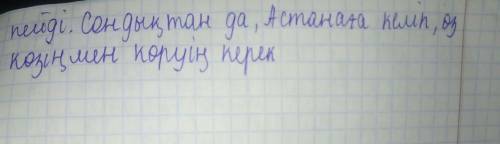 пейді. Сондықтан да, Астанаға келіп, өз
көзіңмен көруің керек